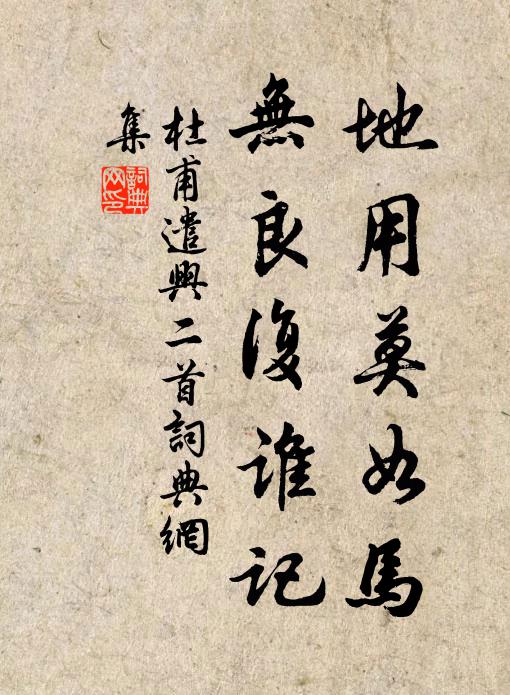 地用莫如馬
無良復誰記
杜甫遣興二首詞典網
集
詞典
网印